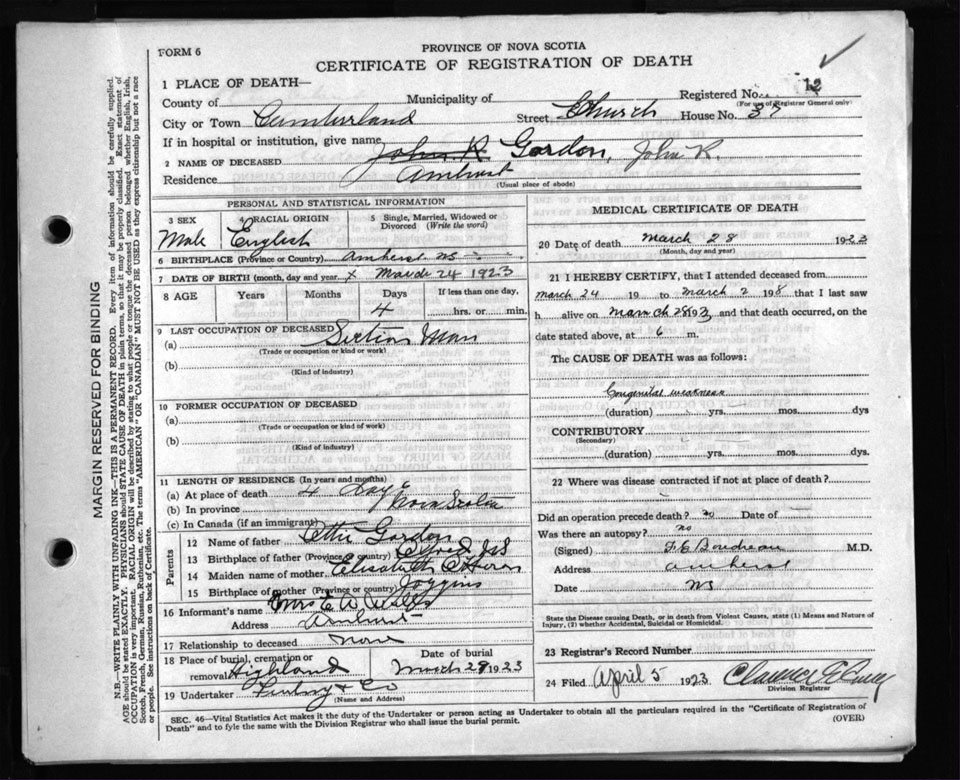 FORM 6
PROVINCE OF NOVA SCOTIA
CERTIFICATE OF REGISTRATION OF DEATH
1 PLACE OF DEATH—
Registered No. 12
(For use of Registrar General only)
County of
Municipality of
City or Town Cumberland
Street Church
House No. 37
If in hospital or institution, give name
2 NAME OF DECEASED John R. Gordon, John R.
Residence Amherst
(Usual place of abode)
PERSONAL AND STATISTICAL INFORMATION
3 SEX
Male
4 RACIAL ORIGIN
English
5 Single, Married, Widowed or
Divorced (Write the word)
6 BIRTHPLACE (Province or Country) Amherst NS
7 DATE OF BIRTH (month, day and year) x March 24 1923
8 AGE
Years
Months
Days
4
If less than one day,
hrs. or min.
9 LAST OCCUPATION OF DECEASED
(a) Section Man
(Trade or occupation or kind or work)
(b)
(Kind of industry)
10 FORMER OCCUPATION OF DECEASED
(a)
(Trade or occupation or kind of work)
(b)
(Kind of industry)
11 LENGTH OF RESIDENCE (In years and months)
(a) At place of death 4 Days
(b) In province Nova Scotia
(c) In Canada (if an immigrant)
Parents
12 Name of father Gordon
13 Birthplace of father (Province or country) NS
14 Maiden name of mother Elisabeth
15 Birthplace of mother (Province or country) Joggins
16 Informant's name Mrs
Address Amherst
17 Relationship to deceased None
18 Place of burial, cremation or
removal Highland
Date of burial
March 28 1923
19 Undertaker & Co
(Name and Address)
MEDICAL CERTIFICATE OF DEATH
20 Date of death March 28 1923
(Month, day and year)
21 I HEREBY CERTIFY, that I attended deceased from
March 24 19 to March 2 198 that I last saw
h alive on March 28 1923 and that death occurred, on the
date stated above, at 6 m.
The CAUSE OF DEATH was as follows:
Congenital weakness
(duration) yrs. mos. dys
CONTRIBUTORY
(Secondary)
(duration) yrs. mos. dys.
22 Where was disease contracted if not at place of death?
Did an operation precede death? no Date of
Was there an autopsy? no
(Signed) F. E Boudreau M.D.
Address Amherst
Date NS
State the Disease causing Death, or in death from Violent Causes, state (1) Means and Nature of
Injury, (2) whether Accidental, Suicidal or Homicidal.
23 Registrar's Record Number
24 Filed April 5 1923
Division Registrar
SEC. 46—Vital Statistics Act makes it the duty of the Undertaker or person acting as Undertaker to obtain all the particulars required in the "Certificate of Registration of
Death" and to fyle the same with the Division Registrar who shall issue the burial permit.
(OVER)
MARGIN RESERVED FOR BINDING
N.B.—WRITE PLAINLY WITH UNFADING INK—THIS IS A PERMANENT RECORD. Every item of information should be carefully supplied.
AGE should be stated EXACTLY. PHYSICIANS should STATE CAUSE OF DEATH in plain terms, so that it may be properly classified. Exact statement of
OCCUPATION is very important. RACIAL ORIGIN will be described by stating to what people or tongue the deceased person belonged whether English, Irish,
Scotch, French, German, Russian, Ruthenian, etc. The terms "AMERICAN" OR "CANADIAN" MUST NOT BE USED as they express citizenship but not a race
or people. See instructions on back of Certificate.